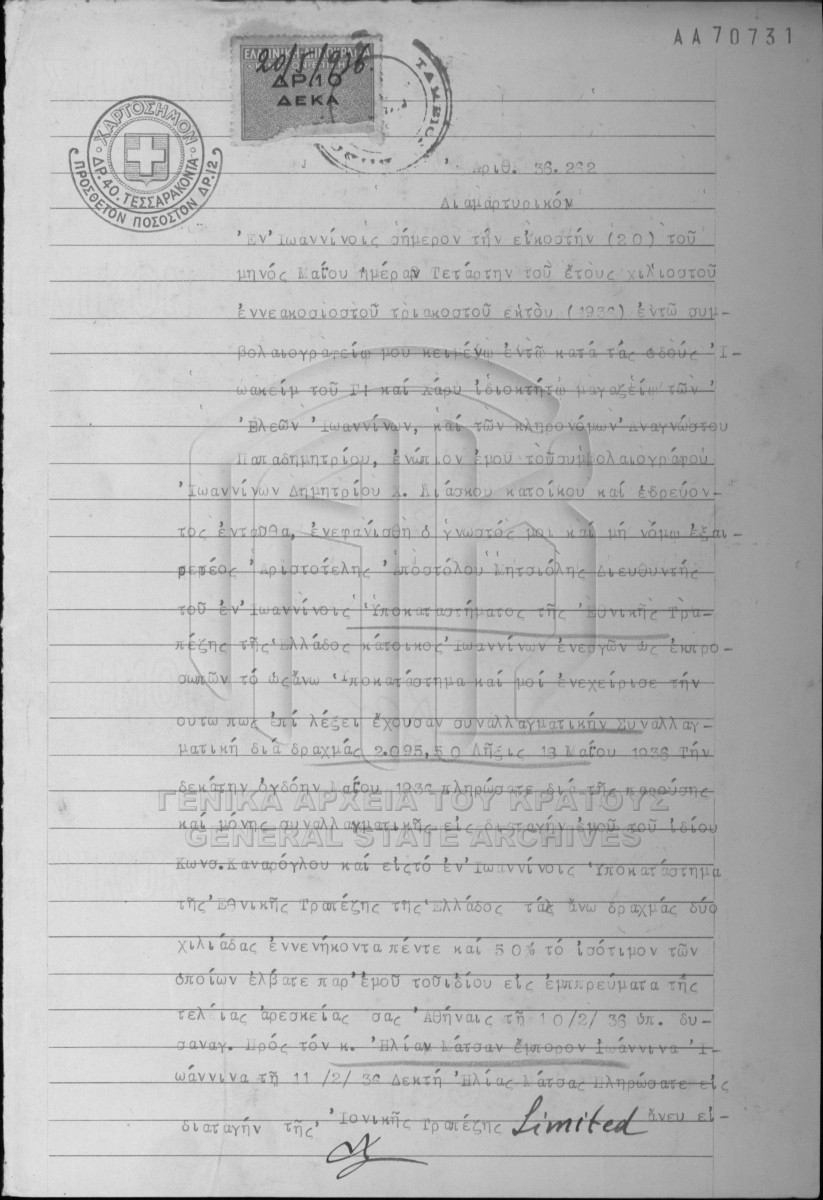 ΑΑ70731
ΕΛΛΗΝΙΚΗ
20/5/936.
ΔΡ.10
ΔΕΚΑ
ΧΑΡΤΟΣΗΜΟΝ
ΔΡ.40.ΤΕΣΣΑΡΑΚΟΝΤΑ
ΠΡΟΣΘΕΤΟΝ ΠΟΣΟΣΤΟΝ ΔΡ.12
Ἀριθ. 36.232
Διαμαρτυρικόν
Ἐν Ἰωαννίνοις σήμερον τήν εἰκοστήν (20) τοῦ
μηνός Μαΐου ἡμέραν Τετάρτην τοῦ ἔτους χιλιοστοῦ
ἐννεακοσιοστοῦ τριακοστοῦ ἕκτου (1936) ἐντῶ συμ-
βολαιογραφείω μου κειμένω ἐντῶ κατά τάς ὁδούς Ἰ-
ωακείμ τοῦ Γ! καί Χάρυ ἰδιοκτήτω μαγαζείω τῶν
Ἐλεῶν Ἰωαννίνων, καί τῶν κληρονόμων Ἀναγνώστου
Παπαδημητρίου, ἐνώπιον ἐμοῦ τοῦσυμβολαιογράφου
Ἰωαννίνων Δημητρίου Χ. Λιάσκου κατοίκου καί ἑδρεύον-
τος ἐνταῦθα, ἐνεφανίσθη ὁ γνωστός μοι καί μή νόμω ἐξαι-
ρετέος Ἀριστοτέλης Ἀποστόλου Μητσιόλης Διευθυντής
τοῦ ἐν Ἰωαννίνοις Ὑποκαταστήματος τῆς Ἐθνικῆς Τρα-
πέζης τῆς Ἑλλάδος κάτοικος Ἰωαννίνων ἐνεργῶν ὡς ἐκπρο-
σωπῶν τό ὡςἄνω Ὑποκατάστημα καί μοί ἐνεχείρισε τήν
οὕτω πως ἐπί λέξει ἔχουσαν συναλλαγματικήν Συναλλαγ-
ματική διά δραχμάς 2.095,50 Λῆξις 18 Μαΐου 1936 Τήν
δεκάτην ὀγδόην Μαΐου 1936 πληρώσατε διά τῆς παρούσης
ΓΕΝΙΚΑ ΑΡΧΕΙΑ ΤΟΥ ΚΡΑΤΟΥΣ
καί μόνης συναλλαγματικῆς εἰς διαταγήν ἐμοῦ τοῦ ἰδίου
GENERAL STATE ARCHIVES
Κωνσ.Καναρόγλου καί εἰςτό ἐν Ἰωαννίνοις Ὑποκατάστημα
τῆς Ἐθνικῆς Τραπέζης τῆς Ἑλλάδος τάς ἄνω δραχμάς δύο
χιλιάδας ἐννενήκοντα πέντε καί 50% τό ἰσότιμον τῶν
ὁποίων ἐλβατε παρ' ἐμοῦ τοῦἰδίου εἰς ἐμπρεύματα τῆς
τελείας ἀρεσκείας σας Ἀθήναις τῇ 10/2/ 36 ὑπ. δυ-
σαναγ. Πρός τόν κ. Ἠλίαν Μάτσαν ἔμπορον Ἰωάννινα Ἰ-
ωάννινα τῇ 11 /2/ 36 Δεκτή Ἠλίας Μάτσας Πληρώσατε εἰς
διαταγήν τῆς Ἰονικῆς Τραπέζης Limited ἄνευ εἰ-